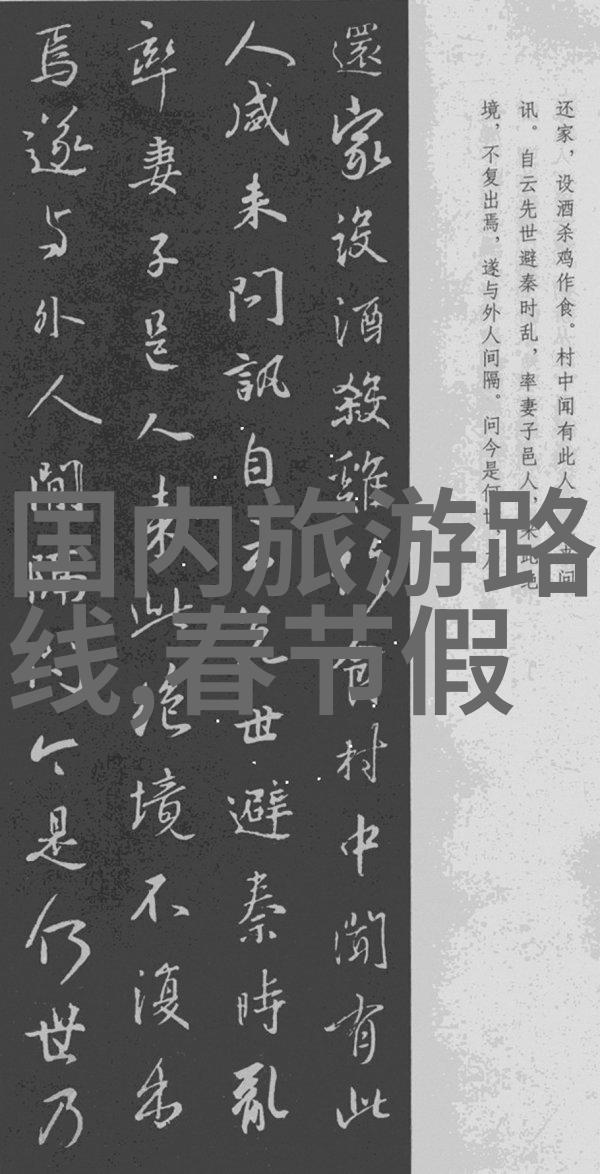 还家，设酒杀鸡作食。村中闻有此人
讯。自云先世避秦时乱，率妻子邑人，来此绝
境，不复出焉，遂与外人间隔。问今是何世
還家設酒殺雞作食村中聞有此
人咸来問訊自云先世避秦時亂
率妻子邑人来此絶境不復出
焉遂与外人間隔問今是何世乃
国内旅游路
线,春节假